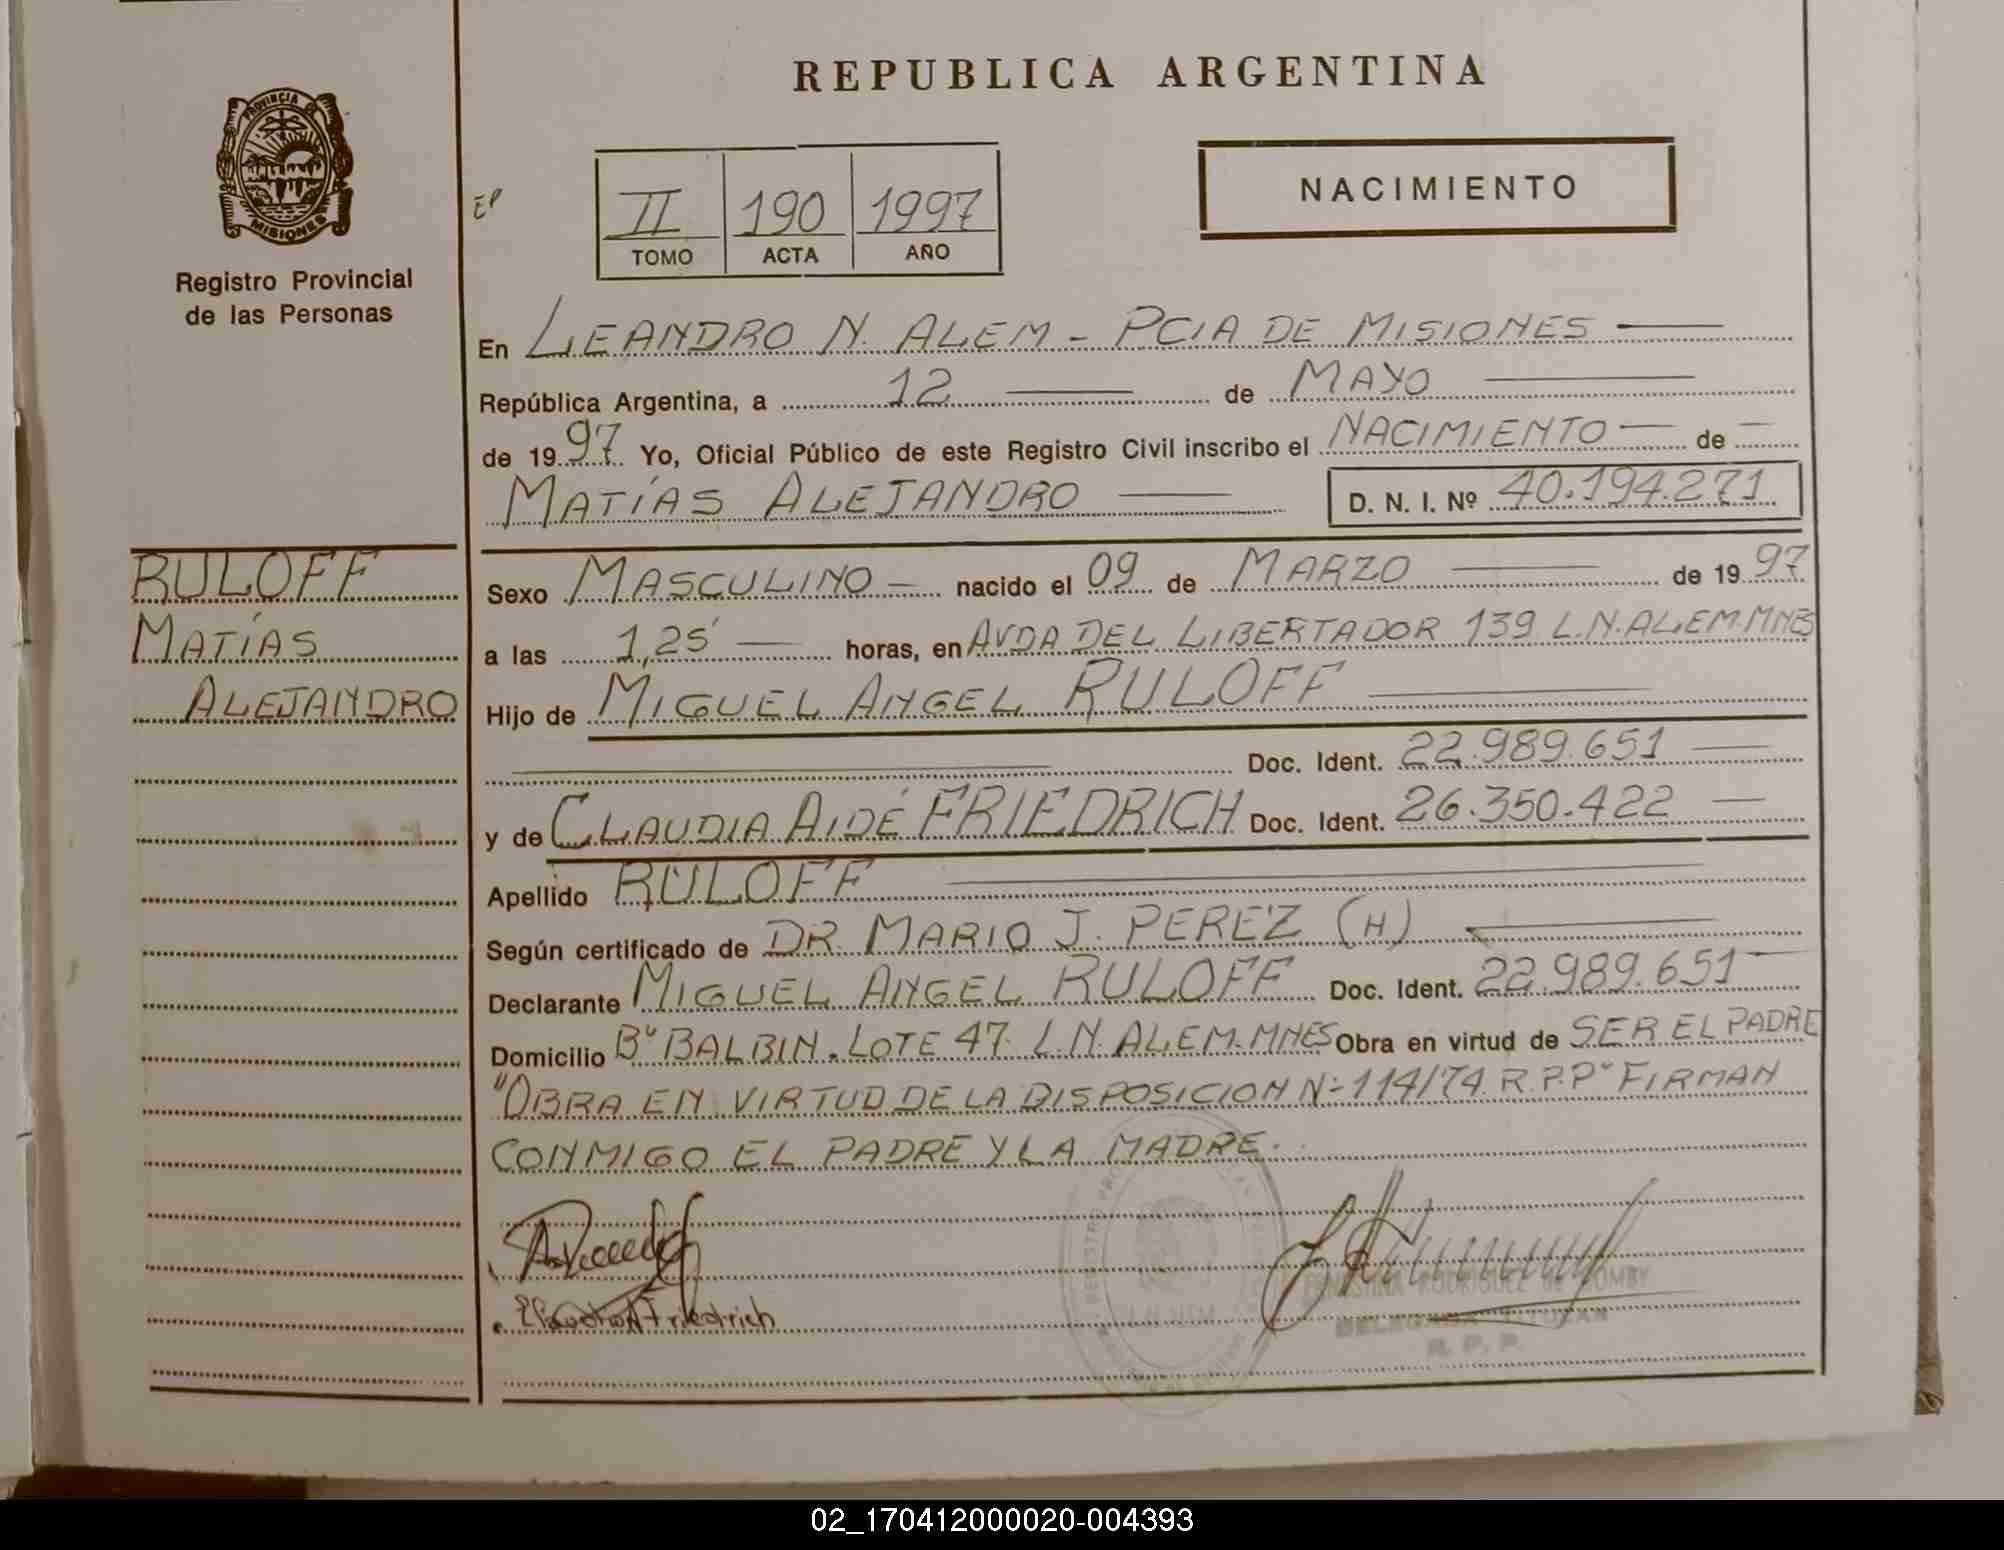 REPUBLICA ARGENTINA
PROVINCIA DE
MISIONES
Registro Provincial
de las Personas
II 190 1997
TOMO ACTA AÑO
NACIMIENTO
En LEANDRO N. ALEM - PCIA DE MISIONES
República Argentina, a 12 de MAYO
de 1997 Yo, Oficial Público de este Registro Civil inscribo el NACIMIENTO de
MATÍAS ALEJANDRO D. N. I. Nº 40.194.271
RULOFF
MATÍAS
ALEJANDRO
Sexo MASCULINO nacido el 09 de MARZO de 1997
a las 1,25' horas, en AVDA DEL LIBERTADOR 139 L.N.ALEM.MNES
Hijo de MIGUEL ANGEL RULOFF
Doc. Ident. 22.989.651
y de CLAUDIA AIDÉ FRIEDRICH Doc. Ident. 26.350.422
Apellido RULOFF
Según certificado de DR. MARIO J. PEREZ (H)
Declarante MIGUEL ANGEL RULOFF Doc. Ident. 22.989.651
Domicilio Bº BALBIN. LOTE 47. L.N. ALEM.MNES Obra en virtud de SER EL PADRE
"OBRA EN VIRTUD DE LA DISPOSICION Nº 114/74 R.P.P" FIRMAN
CONMIGO EL PADRE Y LA MADRE.
Friedrich
RODRIGUEZ DE
DELEGADA TITULAR
R. P. P.
02_170412000020-004393